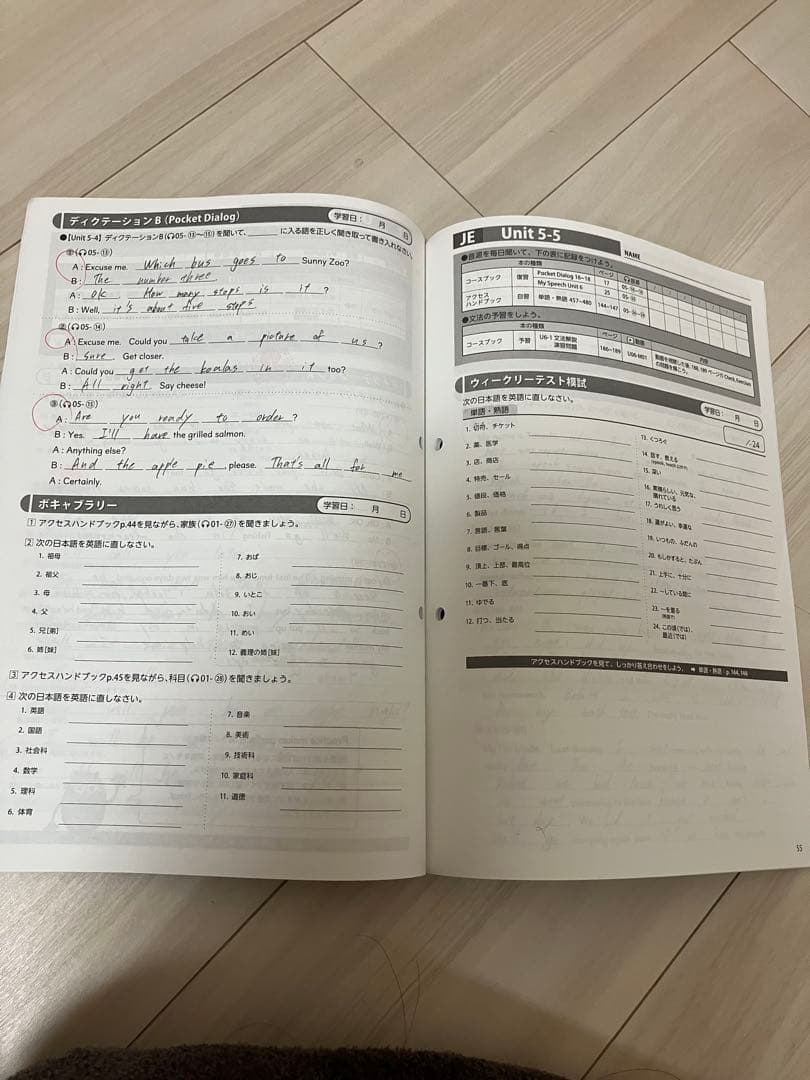 ディクテーション B (Pocket Dialog)
学習日: 月 日
●【Unit 5-4】ディクテーションB(🎧05-⑬~⑮)を聞いて、______に入る語を正しく聞き取って書き入れなさい。
①(🎧05-⑬)
A : Excuse me. Which bus goes to Sunny Zoo?
B : The number three.
A : Ok. How many stops is it ?
B : Well, it's about five stops.
②(🎧05-⑭)
A : Excuse me. Could you take a picture of us ?
B : Sure. Get closer.
A : Could you get the koalas in it too?
B : All right. Say cheese!
③(🎧05-⑮)
A : Are you ready to order ?
B : Yes. I'll have the grilled salmon.
A : Anything else?
B : And the apple pie, please. That's all for me
A : Certainly.
ボキャブラリー
学習日: 月 日
1 アクセスハンドブックp.44を見ながら、家族(🎧01-㉗)を聞きましょう。
2 次の日本語を英語に直しなさい。
1. 祖母
2. 祖父
3. 母
4. 父
5. 兄[弟]
6. 姉[妹]
7. おば
8. おじ
9. いとこ
10. おい
11. めい
12. 義理の姉[妹]
3 アクセスハンドブックp.45を見ながら、科目(🎧01-㉘)を聞きましょう。
4 次の日本語を英語に直しなさい。
1. 英語
2. 国語
3. 社会科
4. 数学
5. 理科
6. 体育
7. 音楽
8. 美術
9. 技術科
10. 家庭科
11. 道徳
JE Unit 5-5
NAME
●音源を毎日聞いて、下の表に記録をつけよう。
本の種類 ページ 🎧音源
コースブック 復習 Pocket Dialog 16~18 17
My Speech Unit 6 25
アクセスハンドブック 自習 単語・熟語 457~480 144~147
●文法の予習をしよう。
本の種類 ページ 動画 内容
コースブック 予習 U6-1 文法解説 演習問題 186~189 U06-M01
ウィークリーテスト模試
次の日本語を英語に直しなさい。
学習日: 月 日
単語・熟語
/24
1. 切符、チケット
2. 薬、医学
3. 店、商店
4. 特売、セール
5. 値段、価格
6. 製品
7. 言語、言葉
8. 目標、ゴール、得点
9. 頂上、上部、最高位
10. 一番下、底
11. ゆでる
12. 打つ、当たる
13. くつろぐ
14. 話す、教える
15. 深い
16. 素晴らしい、元気な、晴れている
17. うれしく思う
18. 運がよい、幸運な
19. いつもの、ふだんの
20. もしかすると、たぶん
21. 上手に、十分に
22. ~している間に
23. ~を着る
24. この頃(では)、最近(では)
アクセスハンドブックを見て、しっかり答え合わせをしよう。 ➡ 単語・熟語:p.144, 146
55